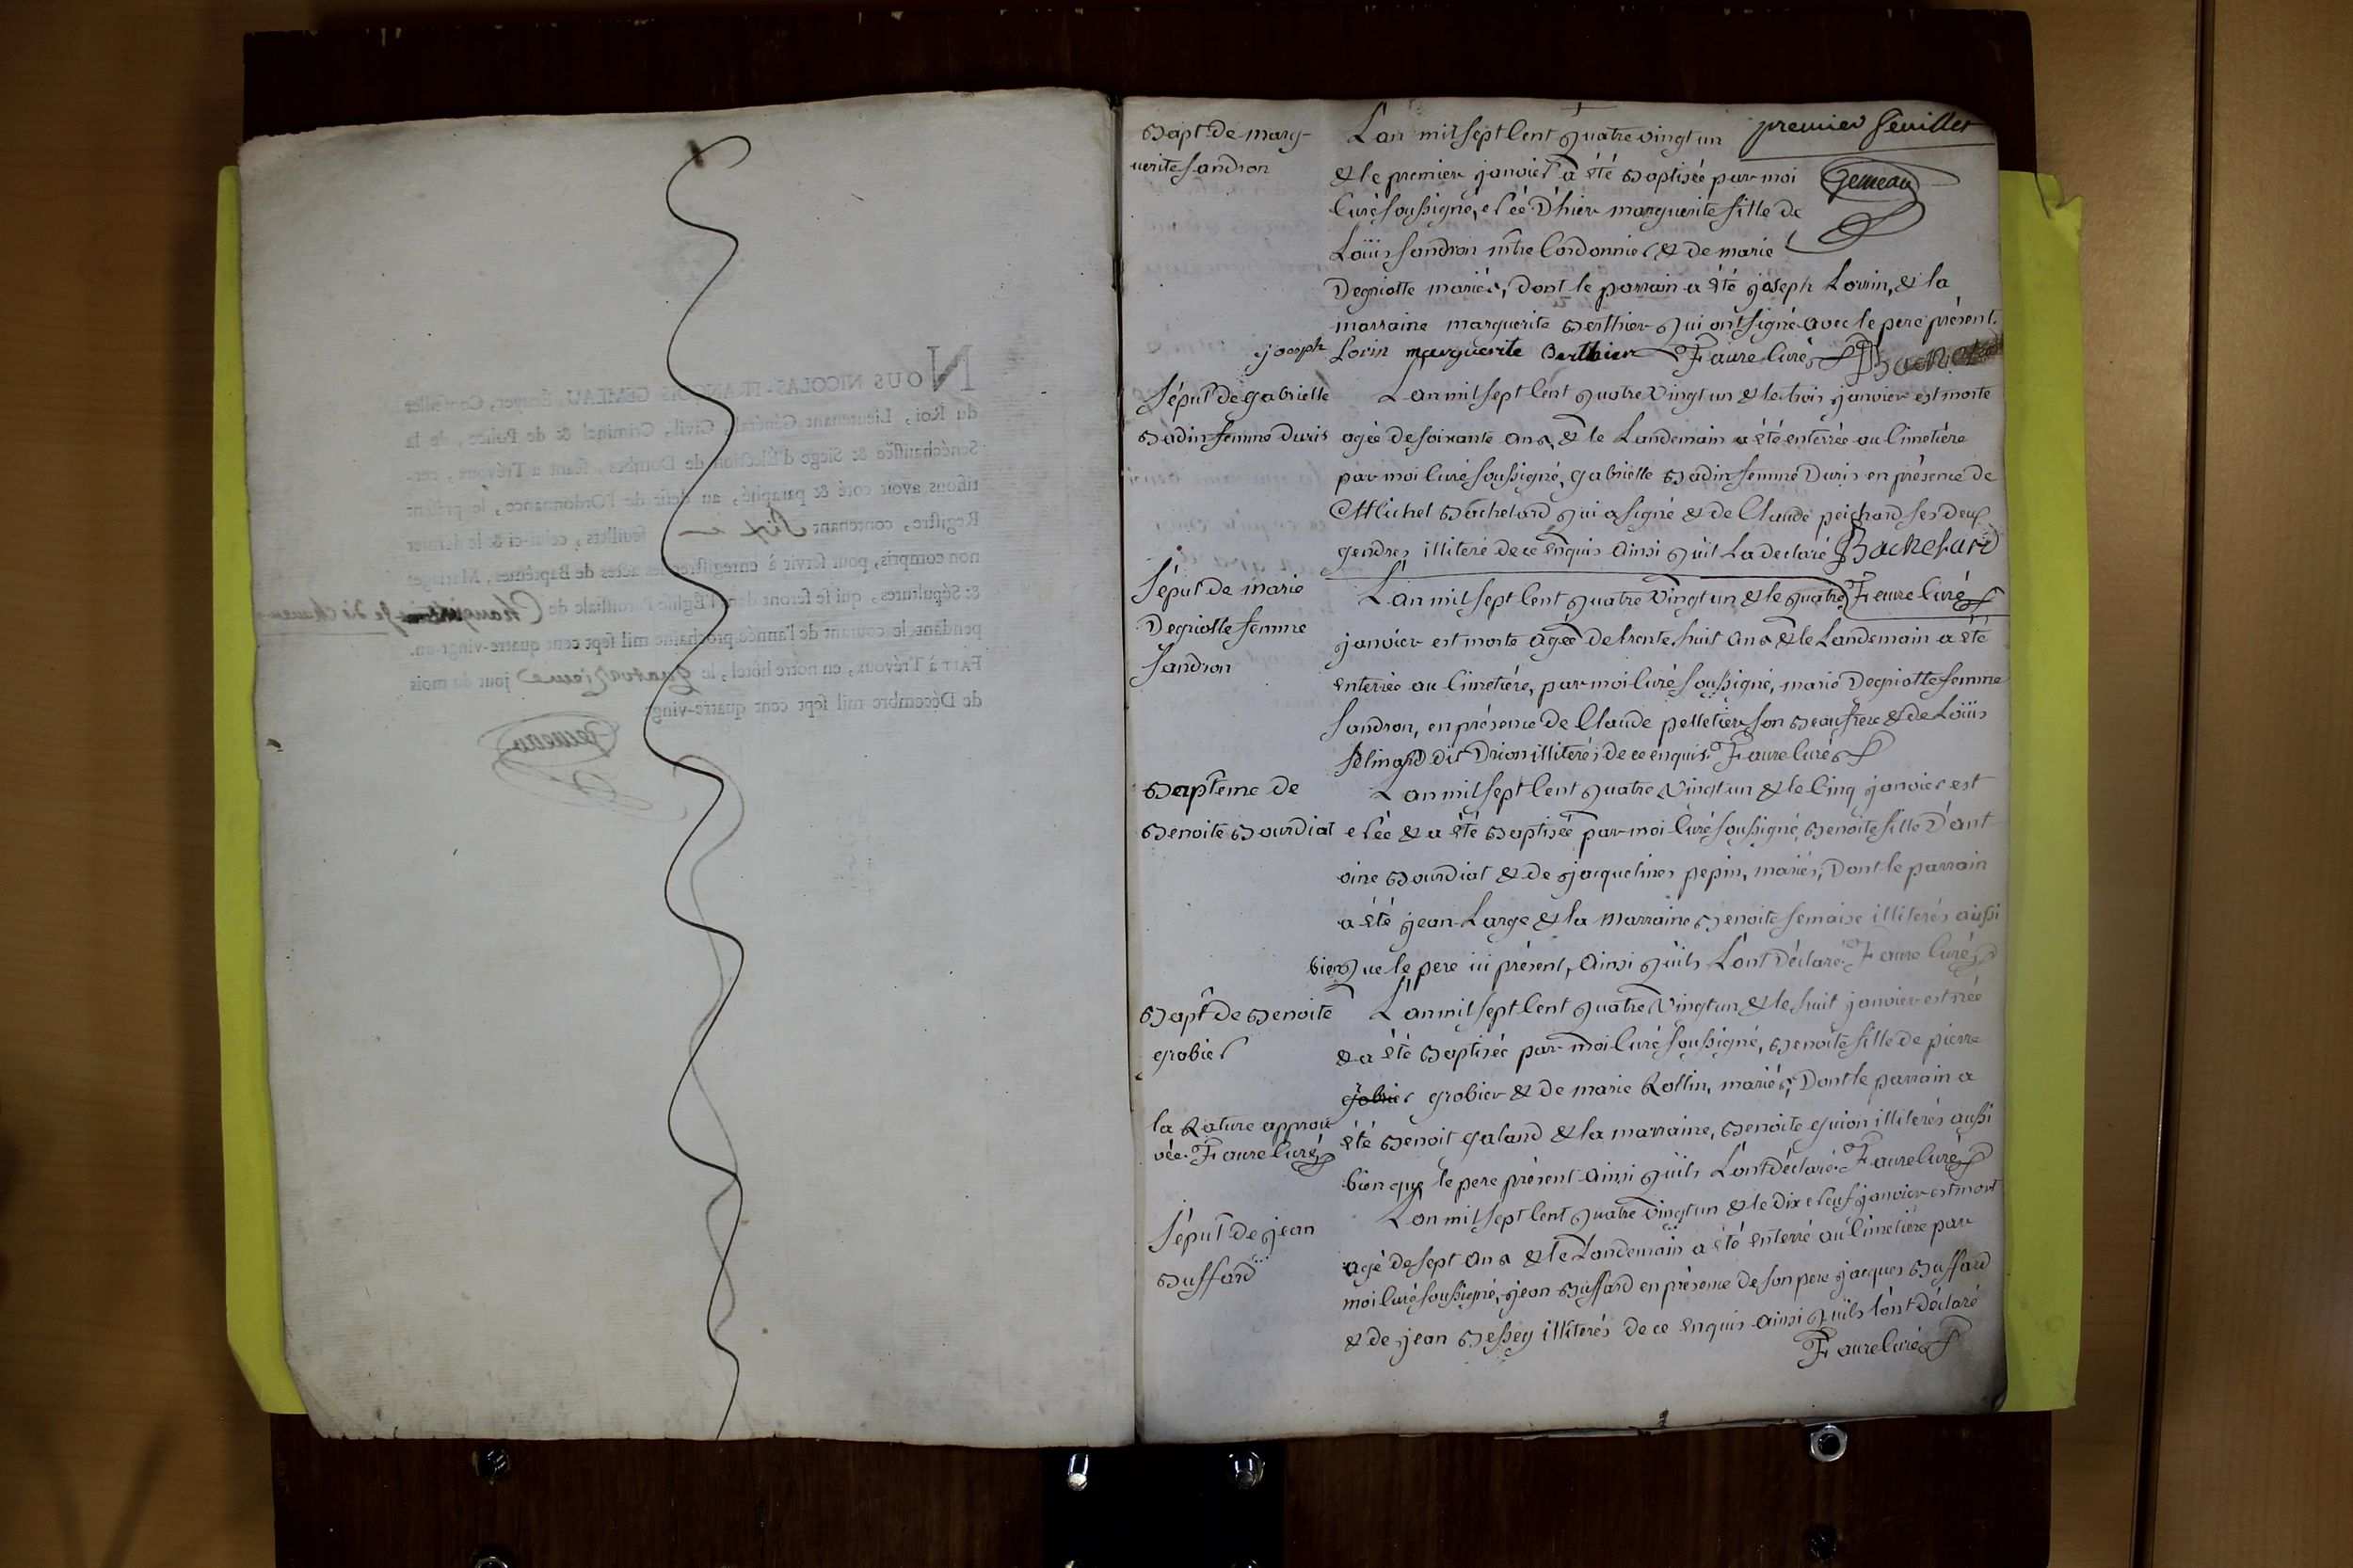 NOUS NICOLAS-FRANÇOIS GEMEAU, Écuyer, Conseiller
du Roi, Lieutenant Général, Civil, Criminel & de Police, de la
Sénéchaussée & Siege d'Élection de Dombes, séant à Trévoux, cer-
tifions avoir coté & paraphé, au desir de l'Ordonnance, le présent
Registre, contenant Six feuillets, celui-ci & le dernier
non compris, pour servir à enregistrer les actes de Baptêmes, Mariages
& Sépultures, qui se feront dans l'Église Paroissiale de
pendant le courant de l'année prochaine mil sept cent quatre-vingt-un.
FAIT à Trévoux, en notre hôtel, le quatorzieme jour du mois
de Décembre mil sept cent quatre-vingt
Gemeau
premier feuillet
Gemeau
Bapt. de marg-
uerite sandron
L'an mil sept Cent quatre vingt un
& le premier janvier a été Baptisée par moi
Curé soussigné, née D'hier marguerite fille de
Loüis sandron mtre Cordonnier & de marie
Degriotte mariés, Dont le parrain a été joseph Lorrin, & la
marraine marguerite Berthier qui ont signé avec le pere présent.
joseph Lorin marguerite Berthier Faure Curé
Sépult de gabrielle
Badin femme Duris
L'an mil sept Cent quatre Vingt un & le trois janvier est morte
agée de soixante ans, & le Landemain a été enterrée au Cimetière
par moi Curé soussigné, gabrielle Badin femme Duris en présence de
Michel Bachelard qui a signé & de Claude peichard ses deux
gendres illiteré de ce enquis ainsi qu'il La declaré Bachelard
Faure Curé
Sépult de marie
Degriotte femme
sandron
L'an mil sept Cent quatre Vingt un & le quatre
janvier est morte agée de trente huit ans & le Landemain a été
enterrée au Cimetiére, par moi Curé soussigné, marie Degriotte femme
sandron, en présence de Claude pelletier son Beaufrere & de Loüis
dit Drion illiterés de ce enquis. Faure Curé
Baptème de
Benoite Bourdiat
L'an mil sept Cent quatre Vingt un & le Cinq janvier est
née & a été Baptisée par moi Curé soussigné, Benoite fille D'ant
oine Bourdiat & de jacqueline pepin, mariés, Dont le parrain
a été jean Large & la marraine Benoite semaise illiterés aussi
bien que le pere ici présent, ainsi qu'ils L'ont déclaré. Faure Curé
Bapt de Benoite
grobier
L'an mil sept Cent quatre Vingt un & le huit janvier est née
& a été Baptisée par moi Curé soussigné, Benoite fille de pierre
gobier grobier & de marie Rollin, mariés, Dont le parrain a
été Benoit galand & la marraine, Benoite guion illiterés aussi
bien que le pere présent ainsi qu'ils L'ont déclaré. Faure Curé
la Rature approu
vée. Faure Curé
Sépult de jean
Buffard
L'an mil sept Cent quatre Vingt un & le Dix neuf janvier est mort
agé de sept ans & le Landemain a été enterré au Cimetière par
moi Curé soussigné, jean Buffard en présence de son pere jacques Buffard
& de jean Bessey illiterés de ce enquis ainsi qu'ils l'ont déclaré
Faure Curé